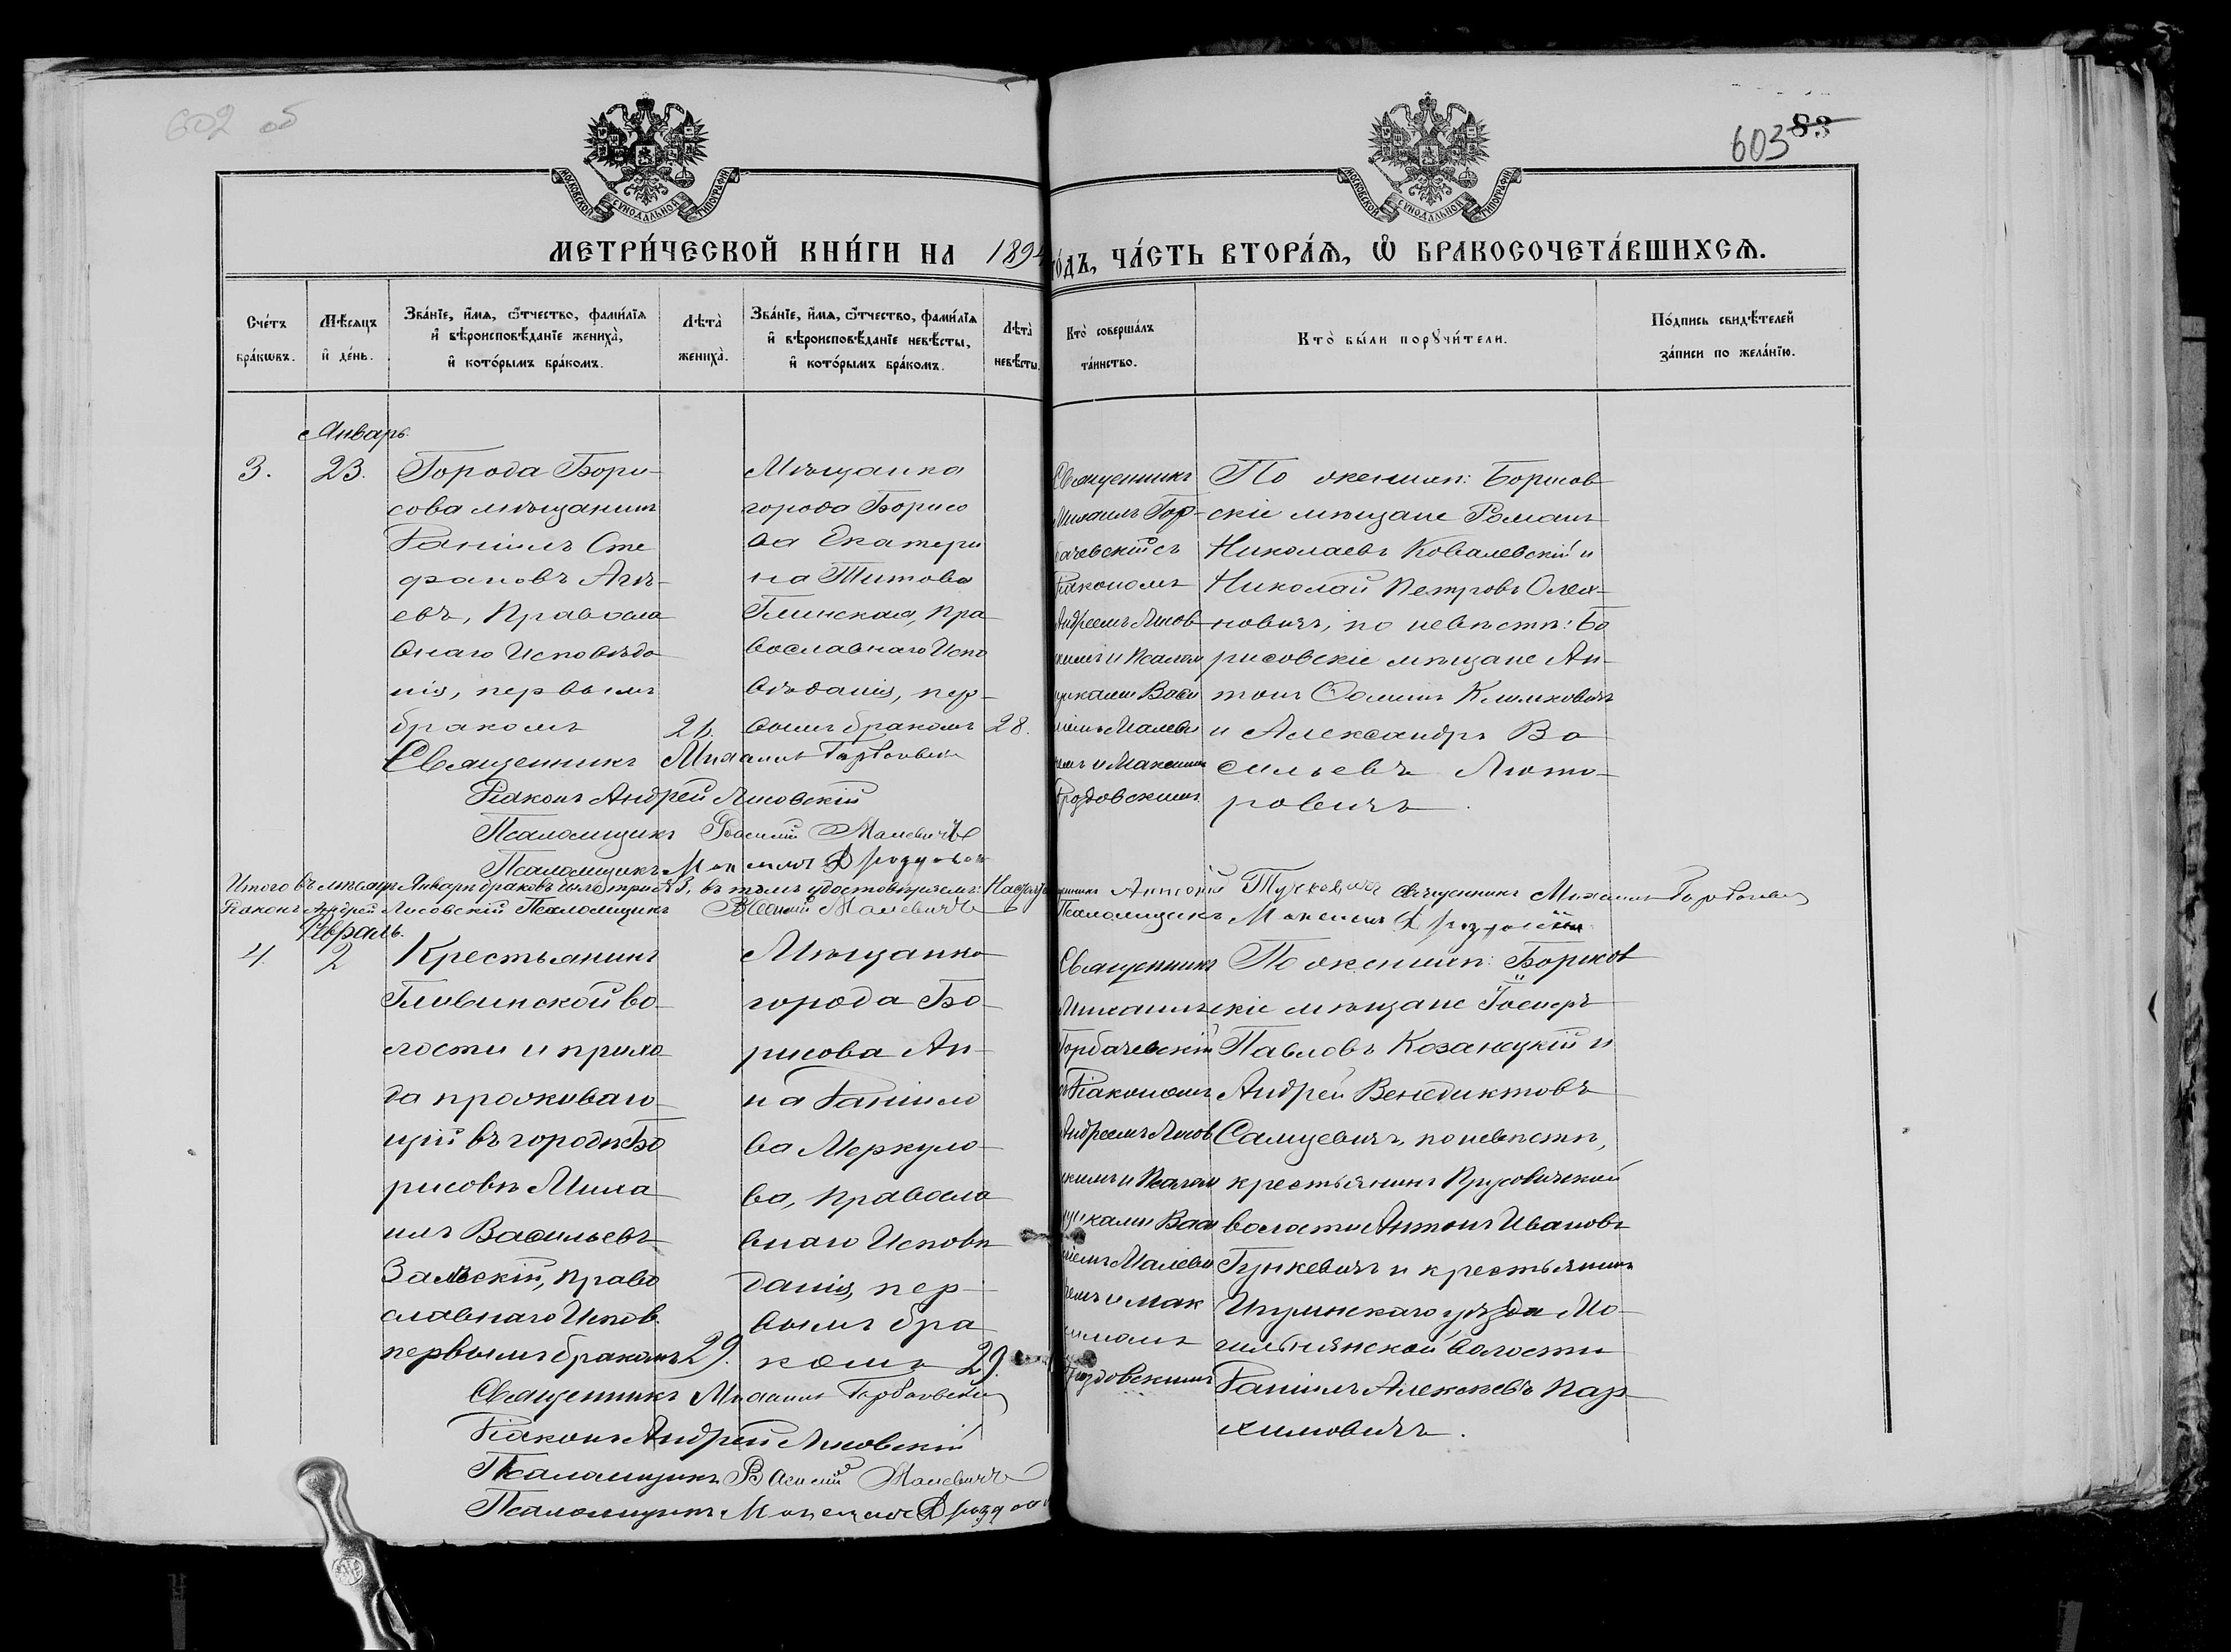 602 об
603 83
МОСКОВСКОЙ СѴНОДАЛЬНОЙ ТИПОГРАФІИ
МОСКОВСКОЙ СѴНОДАЛЬНОЙ ТИПОГРАФІИ
МЕТРИ́ЧЕСКОЙ КНИ́ГИ НА 1894
го́дъ, ЧА́СТЬ ВТОРА́Ѧ, Ѡ҆ БРАКОСОЧЕТА́ВШИХСѦ.
Сче́тъ бра́кѡвъ.
Мѣ́сяцъ и҆ де́нь.
Зва́нїе, и҆́мѧ, ѻ҆́тчество, фами́лїѧ
и҆ вѣроисповѣ́данїе жениха̀,
и҆ кото́рымъ бра́комъ.
Лѣта̀ жениха̀.
Зва́нїе, и҆́мѧ, ѻ҆́тчество, фами́лїѧ
и҆ вѣроисповѣ́данїе невѣ́сты,
и҆ кото́рымъ бра́комъ.
Лѣта̀ невѣ́сты.
Кто̀ соверша́лъ
та́инство.
Кто̀ бы́ли порꙋчи́тели.
По́дпись свидѣ́телей
за́писи по жела́нїю.
Январь.
3.
23.
Города Бори-
сова мѣщанинъ
Даніилъ Сте
фановъ Агѣ-
евъ, Правосла
внаго Исповѣда
нія, первымъ
бракомъ
21.
Мѣщанка
города Борисо
ва Екатери
на Титова
Глинская, пра
вославнаго Испо
вѣданія, пер-
вымъ бракомъ
28.
Священникъ
Михаилъ Гор-
бачевскій съ
Діакономъ
Андреемъ Лисов
скимъ и Псалом
щиками Васи
ліемъ Малеви
чемъ и Максимом
Дроздовскимъ.
По женихѣ: Борисов
скіе мѣщане Романъ
Николаевъ Ковалевскій и
Николай Петровъ Олех-
новичъ, по невѣстѣ: Бо
рисовскіе мѣщане Ан-
тонъ Ѳоминъ Климковичъ
и Александръ Ва
сильевъ Люто-
ровичъ.
Священникъ Михаилъ Горбачевскій
Діаконъ Андрей Лисовскій
Псаломщикъ Василій Малевичъ
Псаломщикъ Максимъ Дроздовскій
Итого въ мѣсяцѣ Январѣ браковъ было три 3, въ чемъ удостовѣряемъ:
Священникъ Антоній Священникъ Михаилъ Горбачевскій
Діаконъ Андрей Лисовскій Псаломщикъ Василій Малевичъ
Псаломщикъ Максимъ Дроздовскій
Февраль.
4.
2
Крестьянинъ
Гливинской во-
лости и прихо
да проживаю-
щій въ городѣ Бо
рисовѣ Миха
илъ Васильевъ
Зальскій, право
славнаго Испов.
первымъ бракомъ
29.
Мѣщанка
города Бо-
рисова Ан-
на Даніило
ва Меркуло-
ва, Правосла
внаго Исповѣ
данія, пер-
вымъ бра
комъ
29.
Священникъ
Михаилъ
Горбачевскій
съ Діакономъ
Андреемъ Лисов
скимъ и Псалом
щиками Васи
ліемъ Малеви
чемъ и Мак
симомъ
Дроздовскимъ
По женихѣ: Борисов
скіе мѣщане Іосифъ
Павловъ Козанецкій и
Андрей Венедиктовъ
Самцевичъ, по невѣстѣ,
крестьянинъ Прусовичской
волости Антонъ Ивановъ
Гункевичъ и крестьянинъ
Игуменскаго уѣзда Мо-
гильнянской волости
Даніилъ Алексѣевъ Пар-
химовичъ.
Священникъ Михаилъ Горбачевскій
Діаконъ Андрей Лисовскій
Псаломщикъ Василій Малевичъ
Псаломщикъ Максимъ Дроздовскій